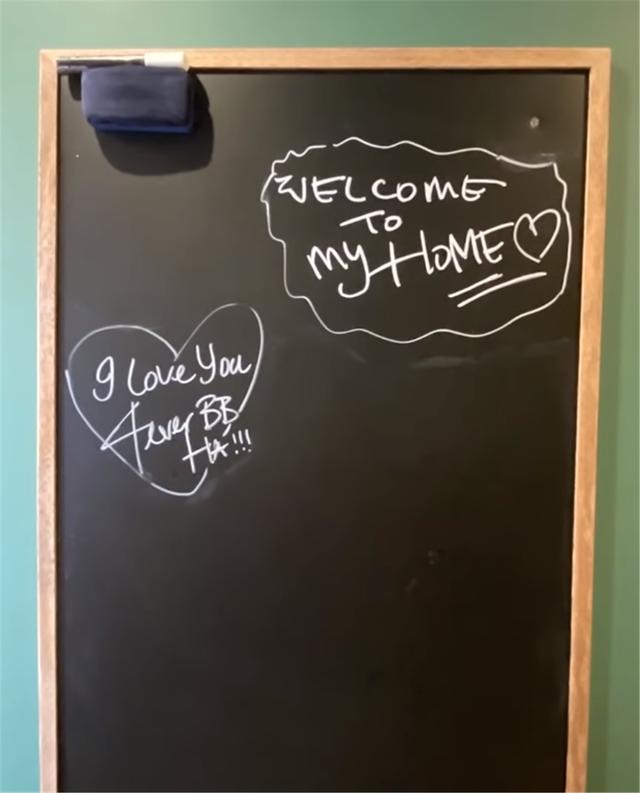 WELCOME
TO
MY HOME
I love You
4ever BB
Hà!!!